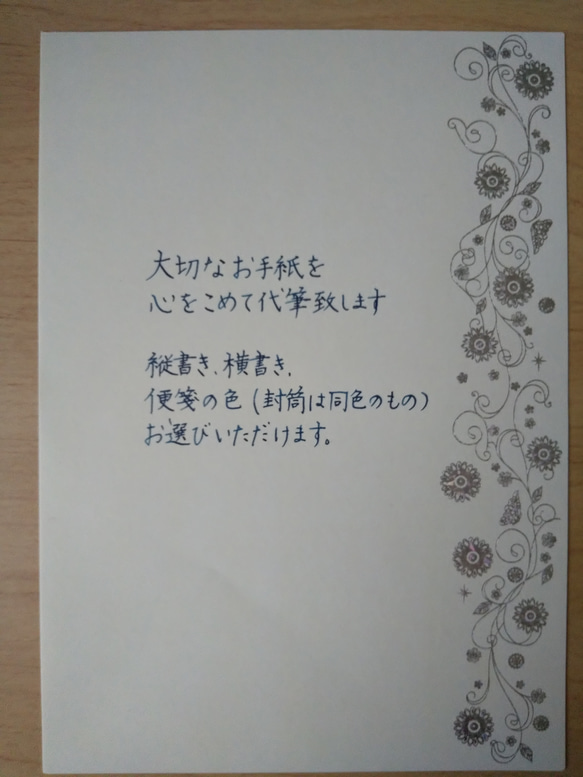 大切なお手紙を
心をこめて代筆致します
縦書き、横書き、
便箋の色（封筒は同色のもの）
お選びいただけます。